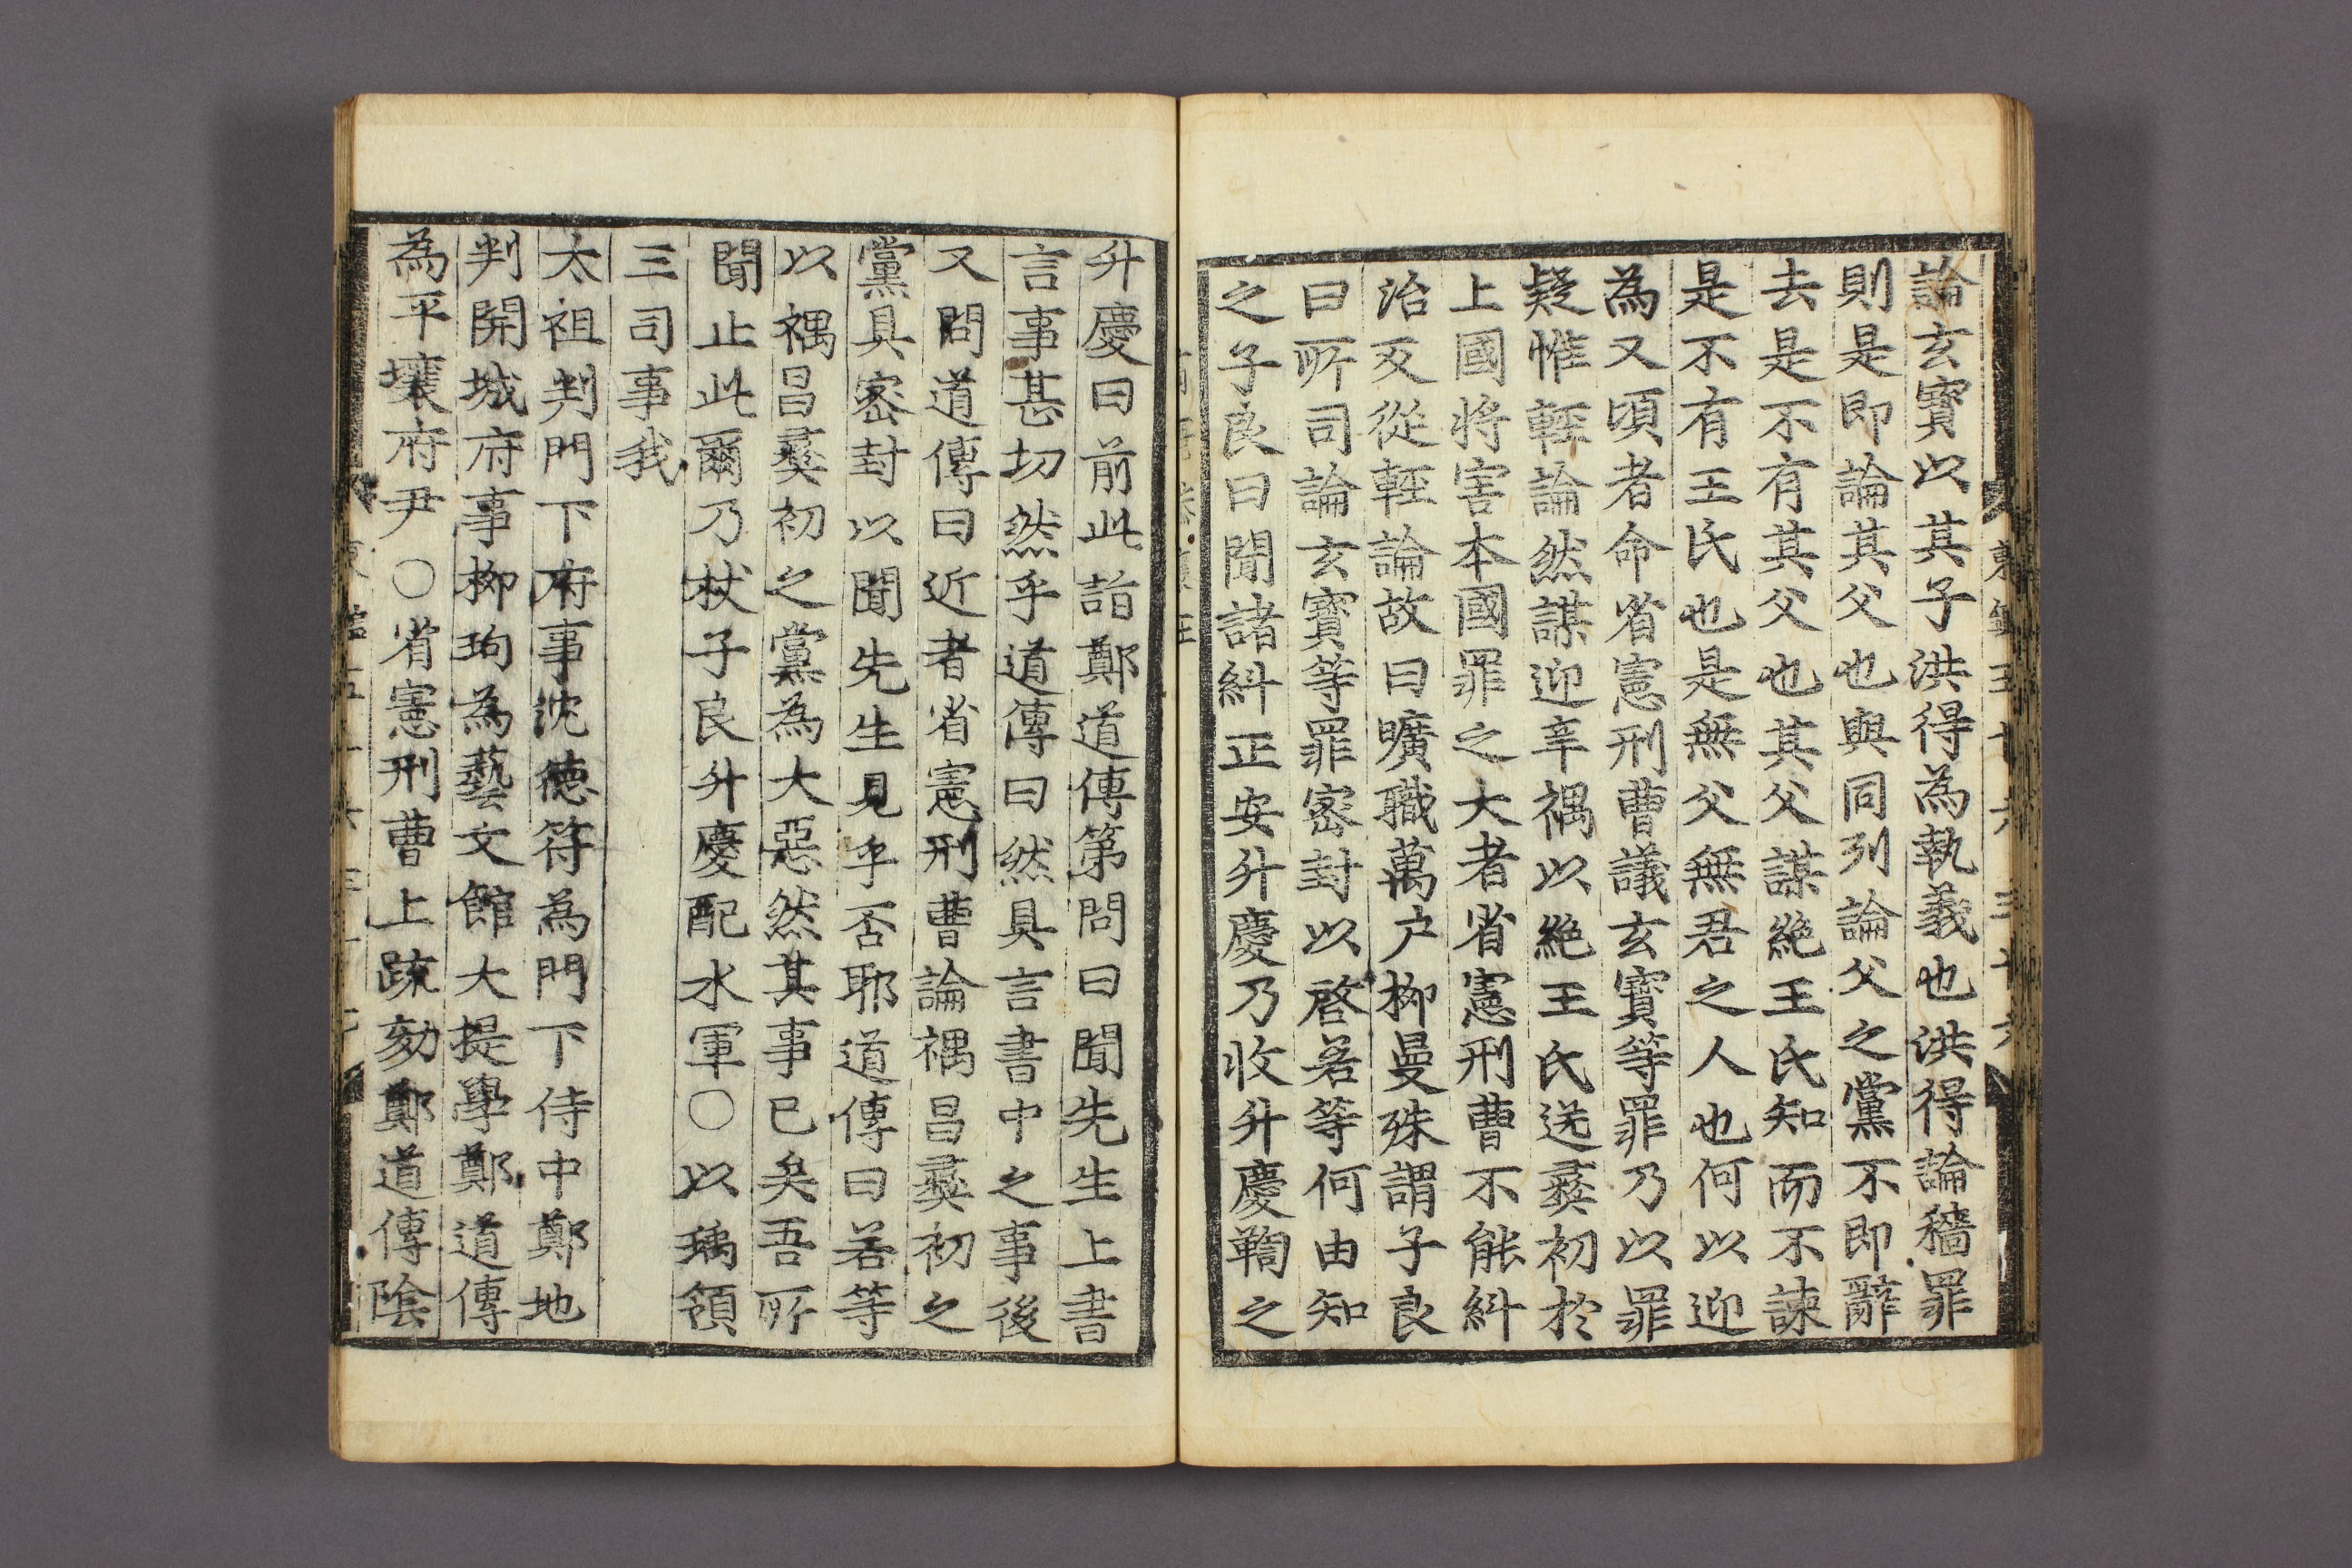 論玄寶以其子洪得為執義也洪得論穡罪
則是即論其父也與同列論父之黨不即辭
去是不有其父也其父謀絶王氏知而不諫
是不有王氏也是無父無君之人也何以迎
為又頃者命省憲刑曹議玄寶等罪乃以罪
疑惟輕論然謀迎辛禑以絶王氏送彛初於
上國將害本國罪之大者省憲刑曹不能糾
治反從輕論故曰曠職萬戶柳曼殊謂子良
曰所司論玄寶等罪密封以啓若等何由知
之子良曰聞諸糾正安升慶乃收升慶鞫之
升慶曰前此詣鄭道傳第問曰聞先生上書
言事甚切然乎道傳曰然具言書中之事後
又問道傳曰近者省憲刑曹論禑昌彛初之
黨具密封以聞先生見乎否耶道傳曰若等
以禑昌彛初之黨為大惡然其事已矣吾所
聞止此爾乃杖子良升慶配水軍〇以瑀領
三司事我
太祖判門下府事沈德符為門下侍中鄭地
判開城府事柳珣為藝文館大提學鄭道傳
為平壤府尹〇省憲刑曹上疏劾鄭道傳陰